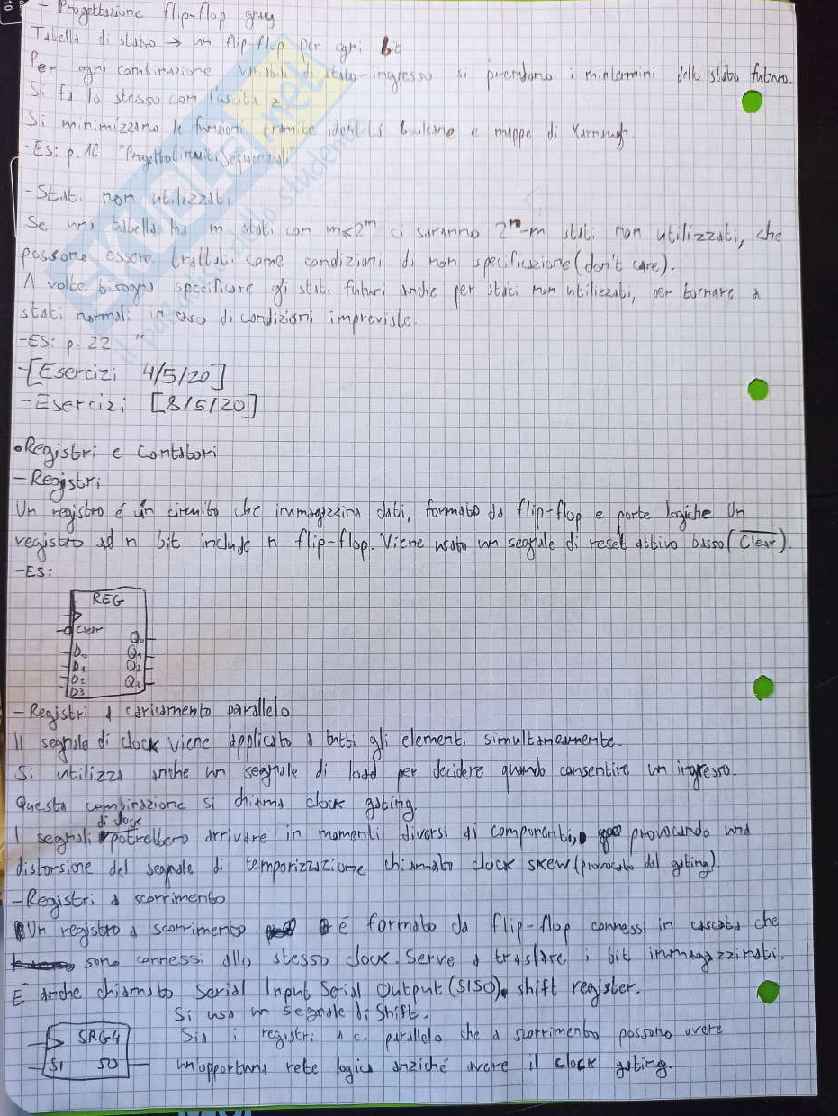 - Progettazione flip-flop
Tabella di stato → un flip-flop per ogni bit
Per ogni combinazione di stato-ingresso si prendono i mintermini dello stato futuro.
Si fa lo stesso con l'uscita z
Si minimizzano le funzioni tramite identità booleane e mappe di Karnaugh.
-Es: p.12 "Progetto Circuiti Sequenziali
-Stati non utilizzati
Se una tabella ha m stati con m<2ⁿ ci saranno 2ⁿ-m stati non utilizzati, che
possono essere trattati come condizioni di non specificazione (don't care).
A volte bisogna specificare gli stati futuri anche per stati non utilizzati, per tornare a
stati normali in caso di condizioni impreviste.
-Es: p. 22 "
-[Esercizi 4/5/20]
-Esercizi [8/5/20]
•Registri e Contatori
-Registri
Un registro é un circuito che immagazzina dati, formato da flip-flop e porte logiche Un
registro ad n bit include n flip-flop. Viene usato un segnale di reset attivo basso (Clear).
-Es:
REG
Clear
D₀ Q₀
D₁ Q₁
D₂ Q₂
D3 Q₃
-Registri a caricamento parallelo
Il segnale di clock viene applicato a tutti gli elementi simultaneamente.
Si utilizza anche un segnale di load per decidere quando consentire un ingresso.
Questa combinazione si chiama clock gating.
I segnali di clock potrebbero arrivare in momenti diversi ai componenti, provocando una
distorsione del segnale di temporizzazione chiamato clock skew (provocato dal gating).
-Registri a scorrimento
Un registro a scorrimento é formato da flip-flop connessi in cascata che
sono connessi allo stesso clock. Serve a traslare i bit immagazzinati.
E' anche chiamato Serial Input Serial Output (SISO) shift register.
Si usa un segnale di Shift.
SRG4 Sia i registri a c. parallelo che a scorrimento possono avere
SI SO un'opportuna rete logica anziché avere il clock gating.